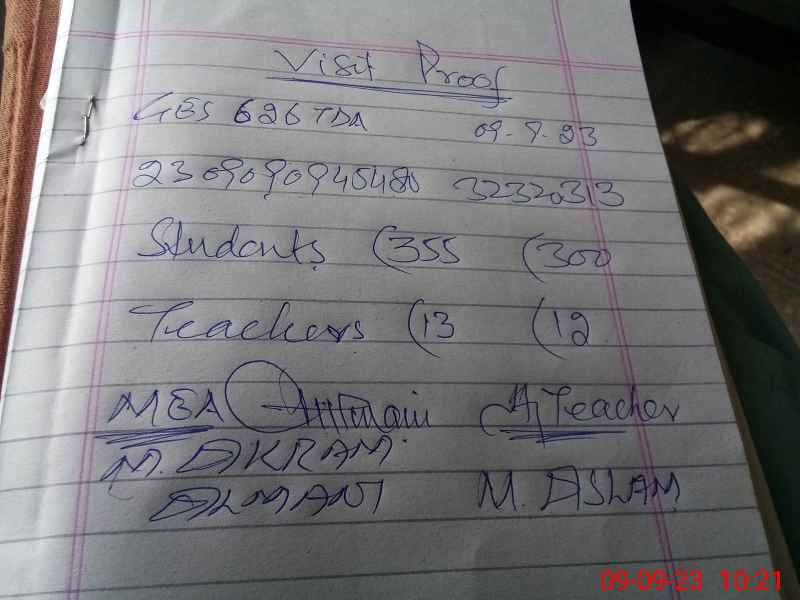 Visit Proof
GES 626 TDA 09-9-23
230909094548 32320313
Students (355 (300
Teachers (13 (12
MEA H Teacher
M. AKRAM
ALMANI M. ASLAM
09-09-23 10:21